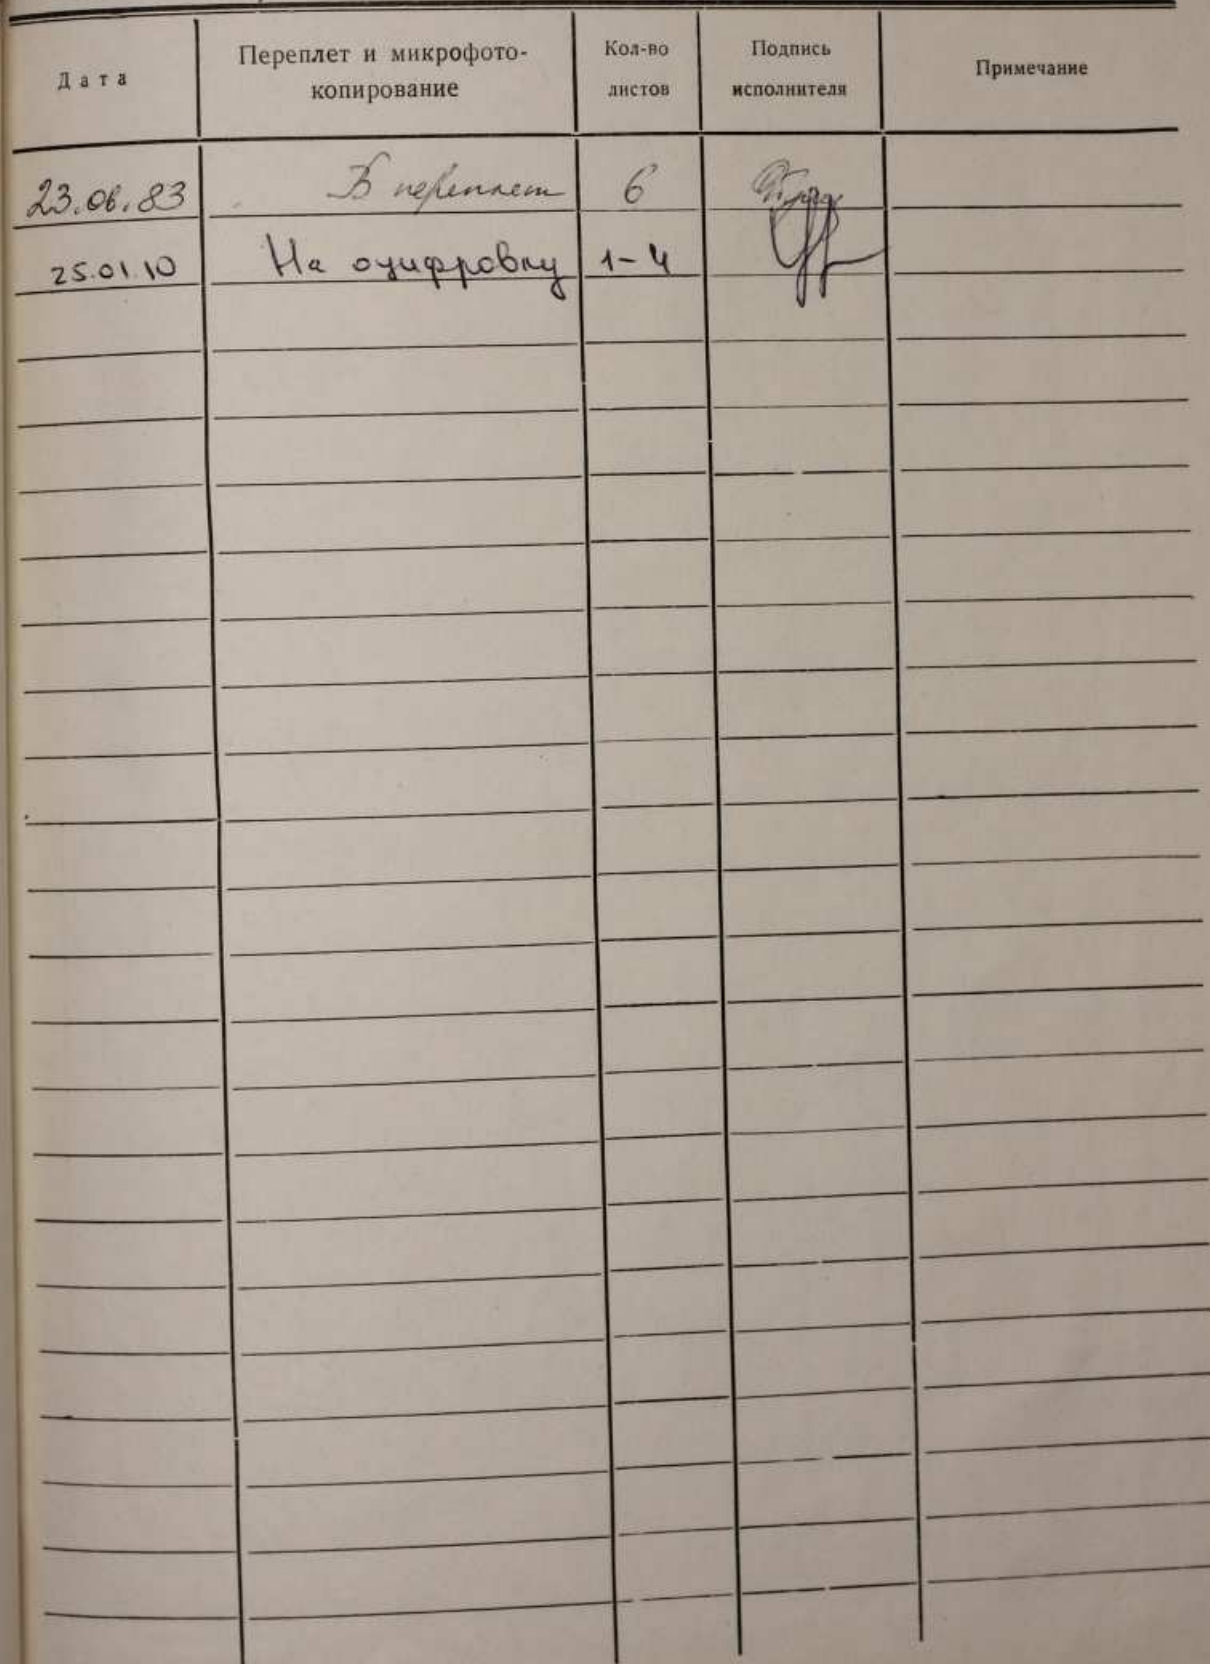 Дата
Переплет и микрофото-
копирование
Кол-во
листов
Подпись
исполнителя
Примечание
23.06.83 В переплет 6
25.01.10 На оцифровку 1-4